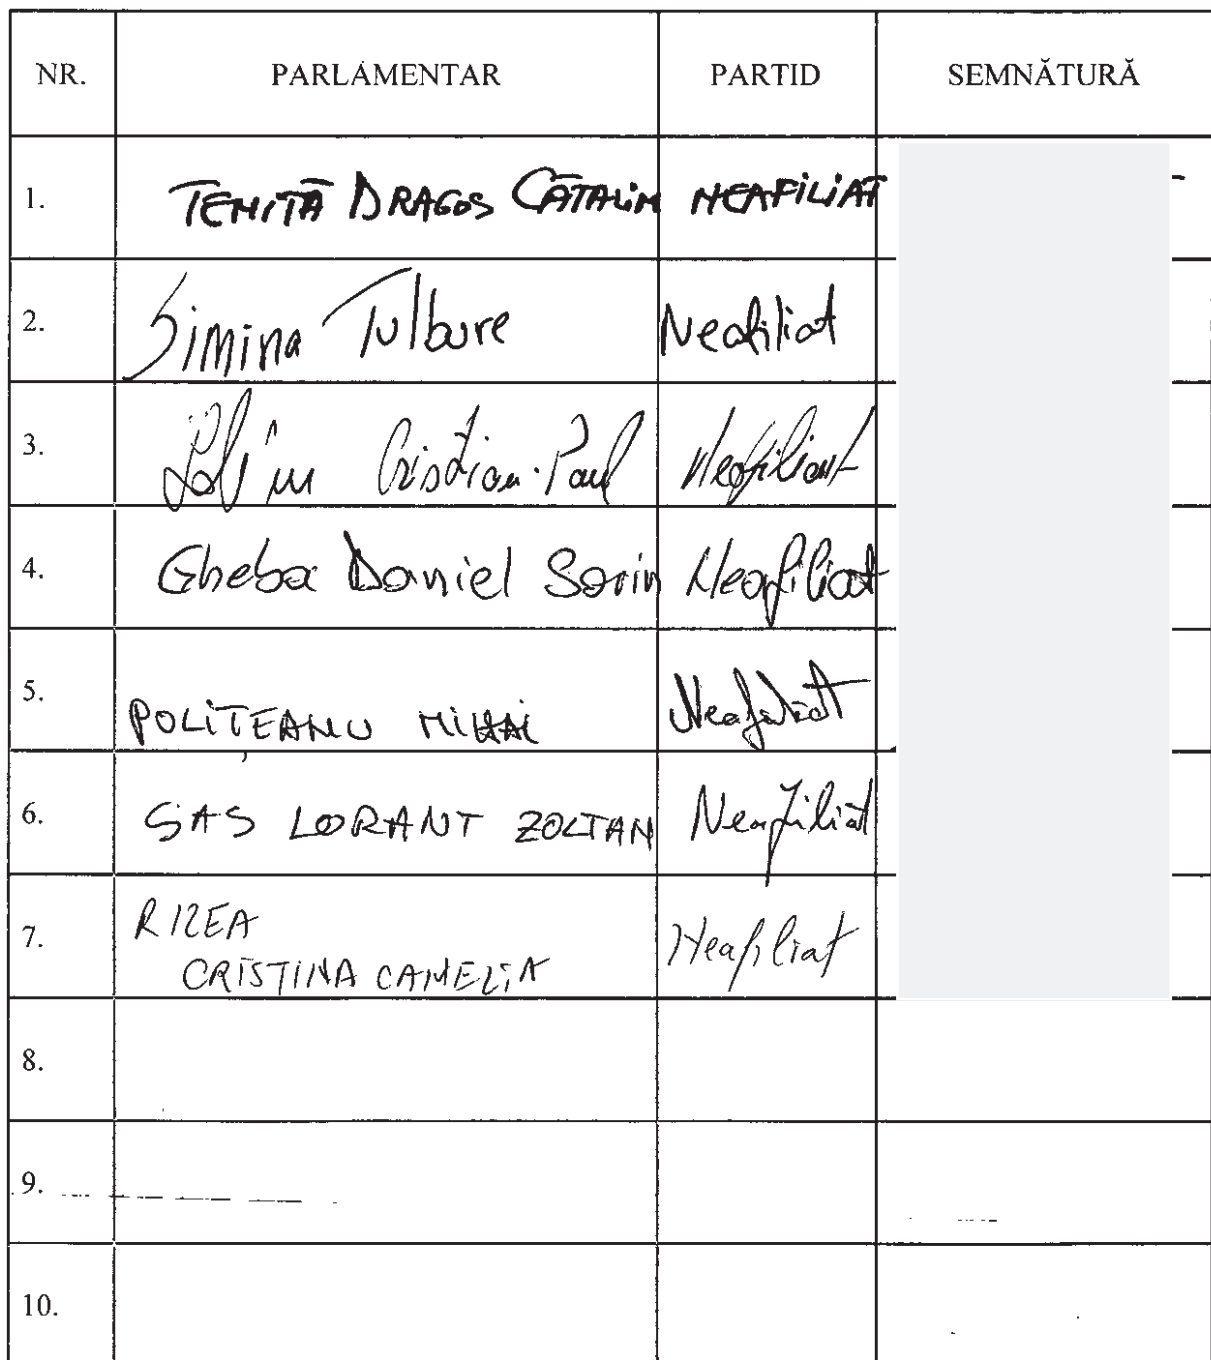 NR. PARLAMENTAR PARTID SEMNĂTURĂ
1. TEHITĂ DRAGOS CĂTALIN NEAFILIAT
2. Simina Tulbure Neafiliat
3. Cristian-Paul Neafiliat
4. Gheba Daniel Sorin Neafiliat
5. POLITEANU MIHAI Neafiliat
6. SAS LORANT ZOLTAN Neafiliat
7. RIZEA
CRISTINA CAMELIA Neafiliat
8.
9.
10.